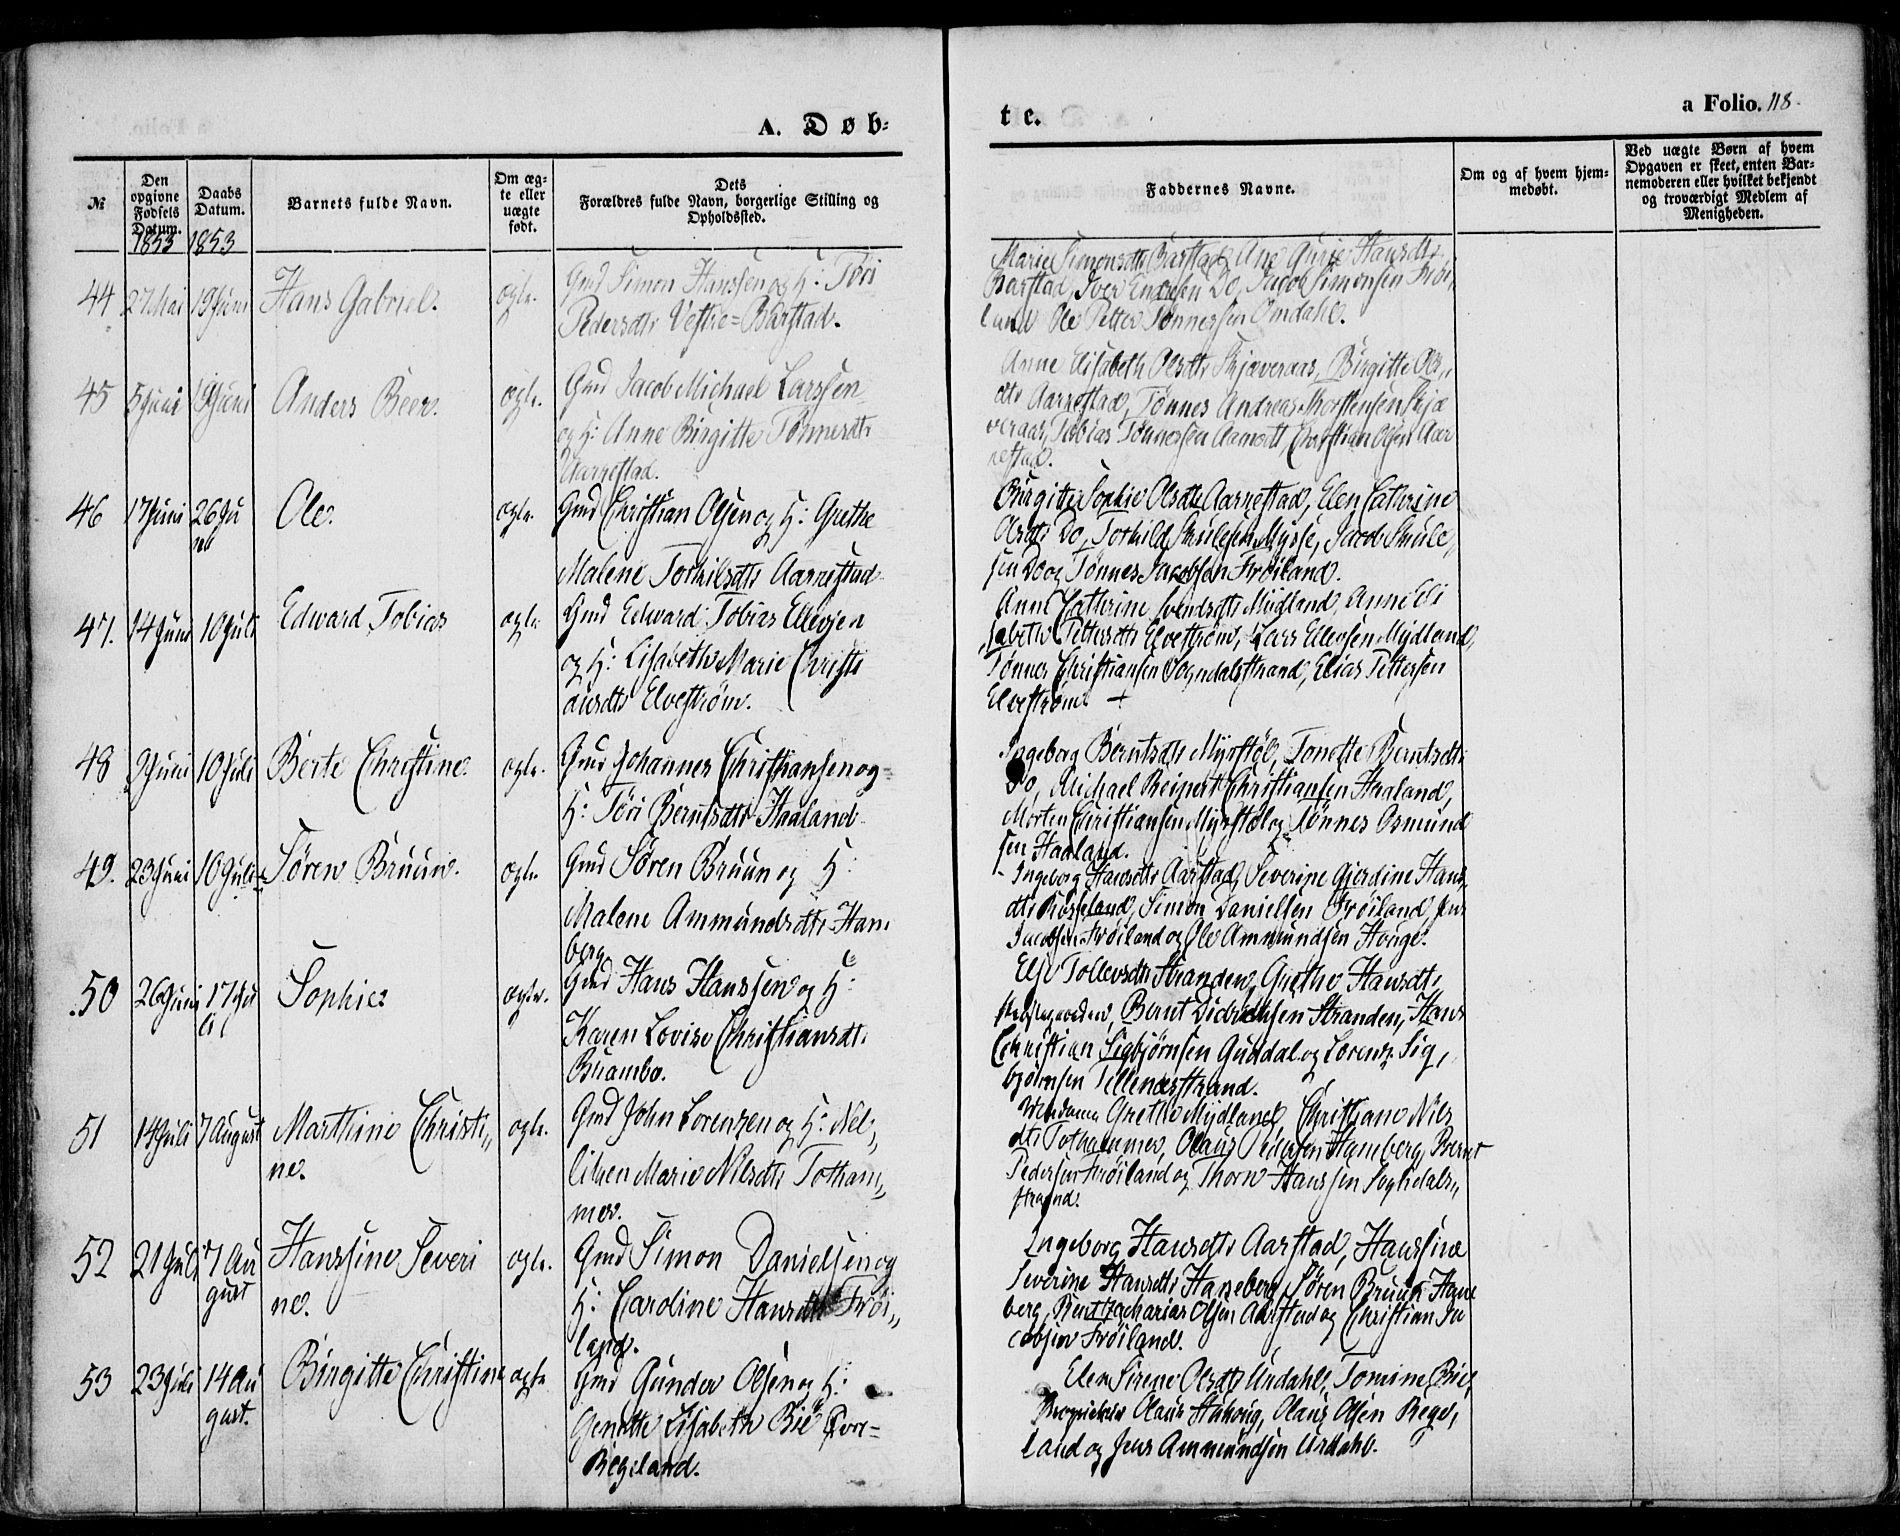 A. Døb=
te.
a Folio. 118.
№
Den opgivne Fødsels Datum.
Daabs Datum.
Barnets fulde Navn.
Om ægte eller uægte født.
Dets
Forældres fulde Navn, borgerlige Stilling og
Opholdssted.
Faddernes Navne.
Om og af hvem hjem=
medøbt.
Ved uægte Børn af hvem
Opgaven er skeet, enten Bar=
nemoderen eller hvilket bekjendt
og troværdigt Medlem af
Menigheden.
1853 1853
44 27 Mai 19 Juni Hans Gabriel. ægte.
Gmd Simon Hanssen og H: Tøri
Pedersdtr Vestre=Barstad.
Marie Simonsdtr Barstad, Ane Gurie Hansdtr
Barstad, Iver Endresen Do, Jacob Simonsen Frøi,
land Ole Petter Tønnessen Omdahl.
45 5 Juni 19 Juni Anders Beer. ægte.
Gmd Jacob Michael Larssen
og H: Anne Birgitte Tønnesdtr
Aarrestad.
Anne Elisabeth Olsdtr Skjæveraas, Birgitte Ols,,
dtr Aarrestad, Tønnes Andreas Thorstensen Skjæ
veraas, Tobias Tønnessen Aamodt, Christian Olsen Aar
restad.
46 17 Juni 26 Ju
ni Ole. ægte.
Gmd Christian Olsen og H: Grethe
Malene Torkilsdtr Aarrestad
Birgitte Sophie Olsdtr Aarrestad, Elen Cathrine
Olsdtr Do, Torkild Skulesen Mysse, Jacob Skule,
sen Do og Tønnes Jacobsen Frøiland.
47. 14 Juni 10 Juli Edward Tobias ægte
Gmd Edward Tobias Ellevsen
og H: Lisabeth Marie Christi
ansdtr Elvestrøm.
Anne Cathrine Svendsdtr Mydland, Anne Eli
sabeth Pettersdtr Elvestrøm, Lars Ellevsen Mydland,
Tønnes Christiansen Sogndalsstrand, Elias Pettersen
Elvestrøm +
48 9 Juni 10 Juli Berte Christine. ægte.
Gmd Johannes Christiansen og
H: Tøri Berntsdtr Haaland
Ingeborg Berntsdtr Myrstøl, Tonette Berntsdtr
Do, Michael Reinert Christiansen Haaland,
Morten Christiansen Myrstøl og Tønnes Osmund
sen Haaland.
49. 23 Juni 10 Juli Søren Bruun. ægte.
Gmd Søren Bruun og H:
Malene Ammundsdtr Han,
berg
Ingeborg Hansdtr Aarstad, Severine Gjerdine Hans,
dtr Røsseland, Simon Danielsen Frøiland, Jens
Jacobsen Frøiland og Ole Ammundsen Houge.
50 26 Juni 17 Ju
li Sophie. ægte.
Gmd Hans Hanssen og H:
Karen Lovise Christiansdtr
Buambo.
Else Tollevsdtr Stranden, Grethe Hansdtr
Bernt Didrichsen Stranden, Hans
Christian Sigbjørnsen Guddal og Lorents Sig,
bjørnsen Tellenesstrand.
51 14 Juli 7 August Marthine Christi,,
ne. ægte.
Gmd John Lorenzen og H: Nel,
likken Marie Nilsdtr Totham,,
mer.
Madame Grethe Mydland, Christiane Nils
dtr Tothammer, Olaus Pedersen Haneberg, Bernt
Pedersen Frøiland og Thorn Hanssen Soghdals,,
strand.
52 21 Juli 7 Au
gust Hanssine Severi
ne. ægte.
Gmd Simon Danielsen og
H: Cardine Hansdtr Frøi,,
land.
Ingeborg Hansdtr Aarstad, Hanssine
Severine Hansdtr Haneberg, Søren Bruun Hane
berg, Bent Zacharias Olsen Aarstad og Christian Ja
cobsen Frøiland.
53 23 Juli 14 Au
gust. Birgitte Christine ægte
Gmd Gunder Olsen og H:
Genette Lisabeth Bie Øvre=
Regeland.
Elen Sirene Olsdtr Urdahl, Tomine Bie,
Olaus Olsen Rege,
land og Jens Ammundsen Urdahl.